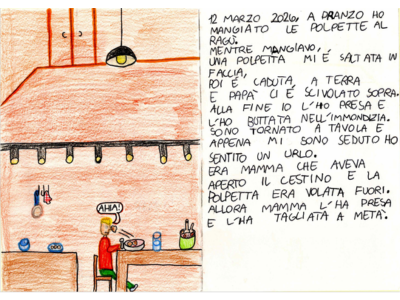 AHIA!
12 MARZO 2026, A PRANZO HO
MANGIATO LE POLPETTE AL
RAGÙ.
MENTRE MANGIAVO,
UNA POLPETTA MI È SALTATA IN
FACCIA,
POI È CADUTA A TERRA
E PAPÀ CI È SCIVOLATO SOPRA.
ALLA FINE IO L'HO PRESA E
L'HO BUTTATA NELL'IMMONDIZIA.
SONO TORNATO A TAVOLA E
APPENA MI SONO SEDUTO HO
SENTITO UN URLO.
ERA MAMMA CHE AVEVA
APERTO IL CESTINO E LA
POLPETTA ERA VOLATA FUORI.
ALLORA MAMMA L'HA PRESA
E L'HA TAGLIATA A METÀ.